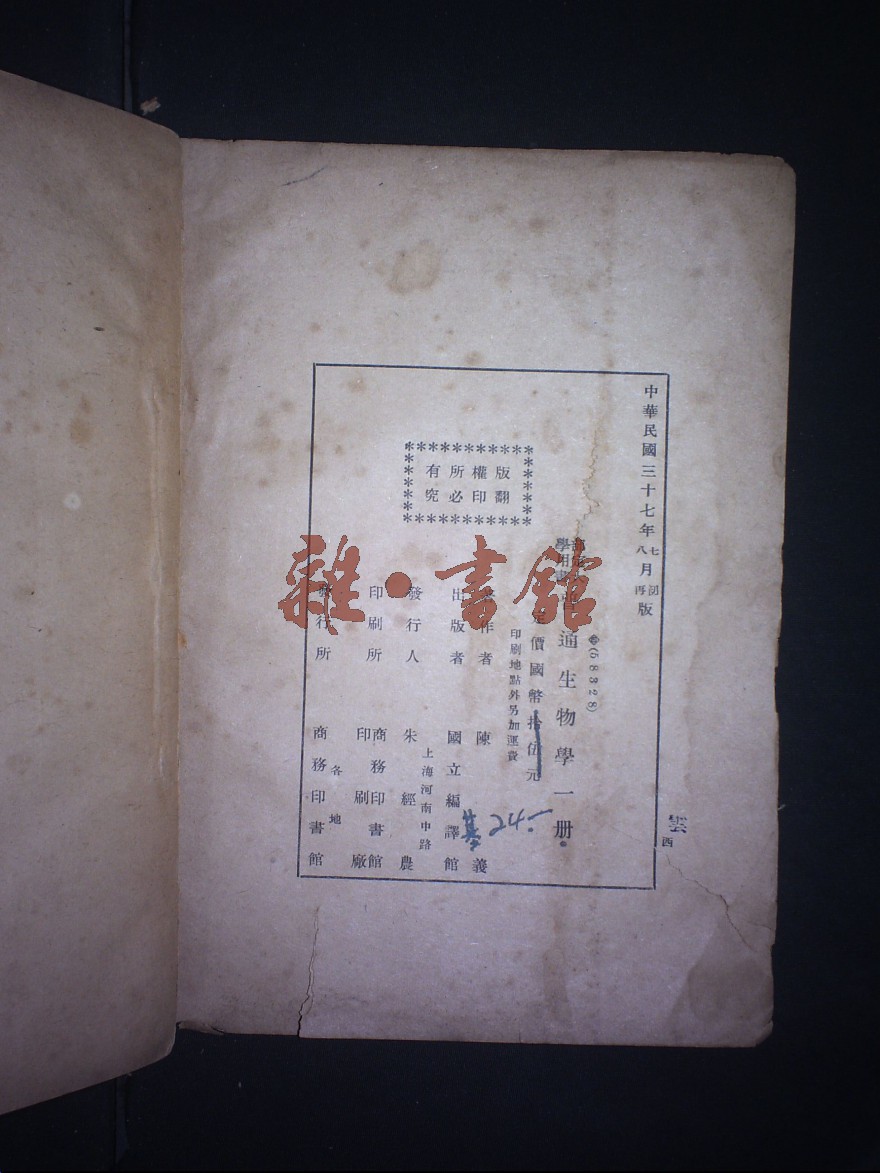 中華民國三十七年七月初版
八月再版
(58328)
通生物學一冊
價國幣拾伍元
印刷地點外另加運費
版權所有
翻印必究
作者 陳義
出版者 國立編譯館
發行人 朱經農
上海河南中路
印刷所 商務印書館
印刷廠
發行所 商務印書館
各地
雲
西
雜·書館